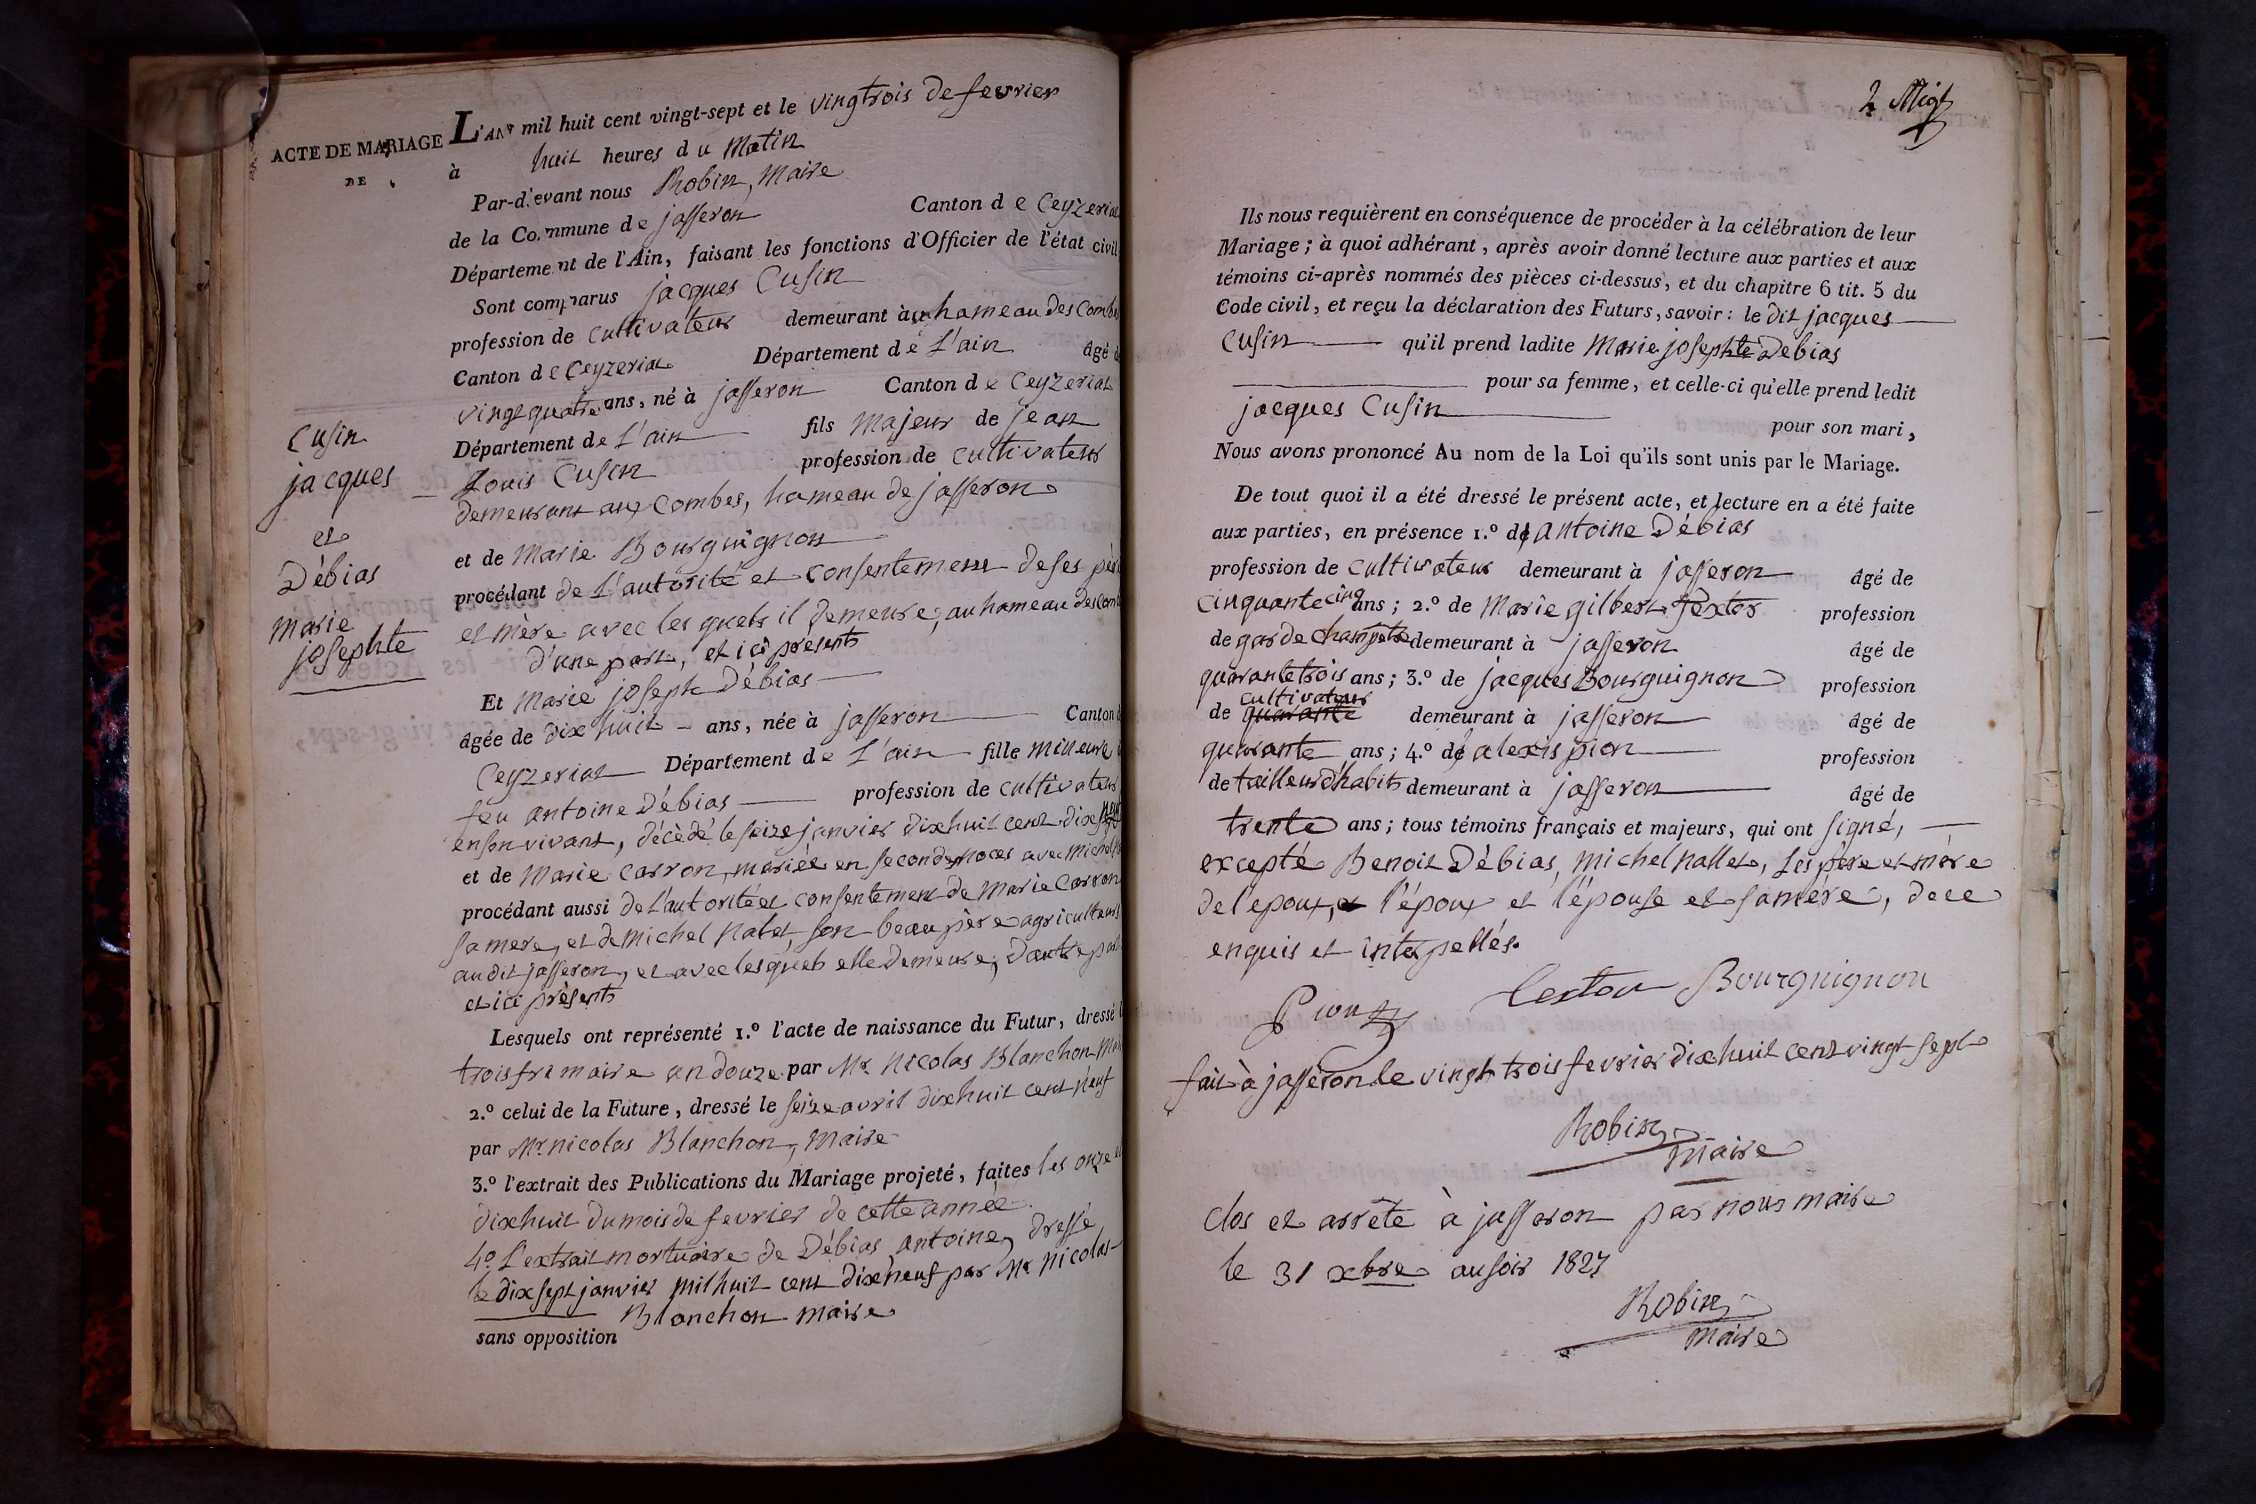 ACTE DE MARIAGE
DE
Cusin
jacques
et
Débias
marie
josephte
L'AN mil huit cent vingt-sept et le vingtrois de fevrier
à huit heures du Matin
Par-devant nous Robin, Maire
de la Commune de jasseron Canton de Ceyzeriat
Département de l'Ain, faisant les fonctions d'Officier de l'état civil
Sont comparus jacques Cusin
profession de cultivateur demeurant au hameau des Combes
Canton de Ceyzeriat Département de L'ain âgé de
vingt quatre ans, né à jasseron Canton de Ceyzeriat
Département de L'ain fils Majeur de jean
Louis Cusin profession de cultivateur
demeurant aux Combes, hameau de jasseron
et de Marie Bourguignon
procédant de L'autorité et consentement de ses père
et mère avec les quels il demeure, au hameau des
d'une part, et ici présents
Et Marie joseph Débias
âgée de dix huit - ans, née à jasseron Canton
Ceyzeriat Département de L'ain fille mineure
feu antoine Débias profession de cultivateur
en son vivant, décèdé le seize janvier dixhuit cent dix neuf
et de Marie Carron, mariée en secondes noces avec michel
procédant aussi de L'autorité et consentement de Marie Carron
sa mere, et de michel nalet, son beau père agriculteurs
audit jasseron, et avec lesquels elle demeure, d'autre part
et ici présents
Lesquels ont représenté 1.º l'acte de naissance du Futur, dressé
trois frimaire an douze par Mr Nicolas Blanchon
2.º celui de la Future, dressé le seize avril dixhuit cent neuf
par Mr nicolas Blanchon, maire
3.º l'extrait des Publications du Mariage projeté, faites les onze et
dixhuit du mois de fevrier de cette année
4º L'extrait mortuaire de Débias antoine, dressé
le dix sept janvier mil huit cent dix neuf par Mr nicolas
Blanchon maire
sans opposition
2
Ils nous requièrent en conséquence de procéder à la célébration de leur
Mariage; à quoi adhérant, après avoir donné lecture aux parties et aux
témoins ci-après nommés des pièces ci-dessus, et du chapitre 6 tit. 5 du
Code civil, et reçu la déclaration des Futurs, savoir: le dit jacques
Cusin qu'il prend ladite Marie josephte Débias
pour sa femme, et celle-ci qu'elle prend ledit
jacques Cusin
pour son mari,
Nous avons prononcé Au nom de la Loi qu'ils sont unis par le Mariage.
De tout quoi il a été dressé le présent acte, et lecture en a été faite
aux parties, en présence 1.º d'antoine Débias
profession de cultivateur demeurant à jasseron âgé de
cinquante cinq ans; 2.º de Marie gilbert Textor profession
de garde champetre demeurant à jasseron âgé de
quarante trois ans; 3.º de jacques Bourguignon profession
cultivateur
de quarante demeurant à jasseron âgé de
quarante ans; 4.º d'alexis pion profession
de tailleur d'habits demeurant à jasseron âgé de
trente ans; tous témoins français et majeurs, qui ont signé,
excepté Benoit Débias, michel nallet, Les père et mère
de l'epoux, l'époux et l'épouse et sa mére, de ce
enquis et interpellés.
Pion Textor Bourguignon
fait à jasseron le vingt trois fevrier dixhuit cent vingt sept
Robin
maire
Clos et arrêté à jasseron par nous maire
le 31 xbre au soir 1827
Robin
maire